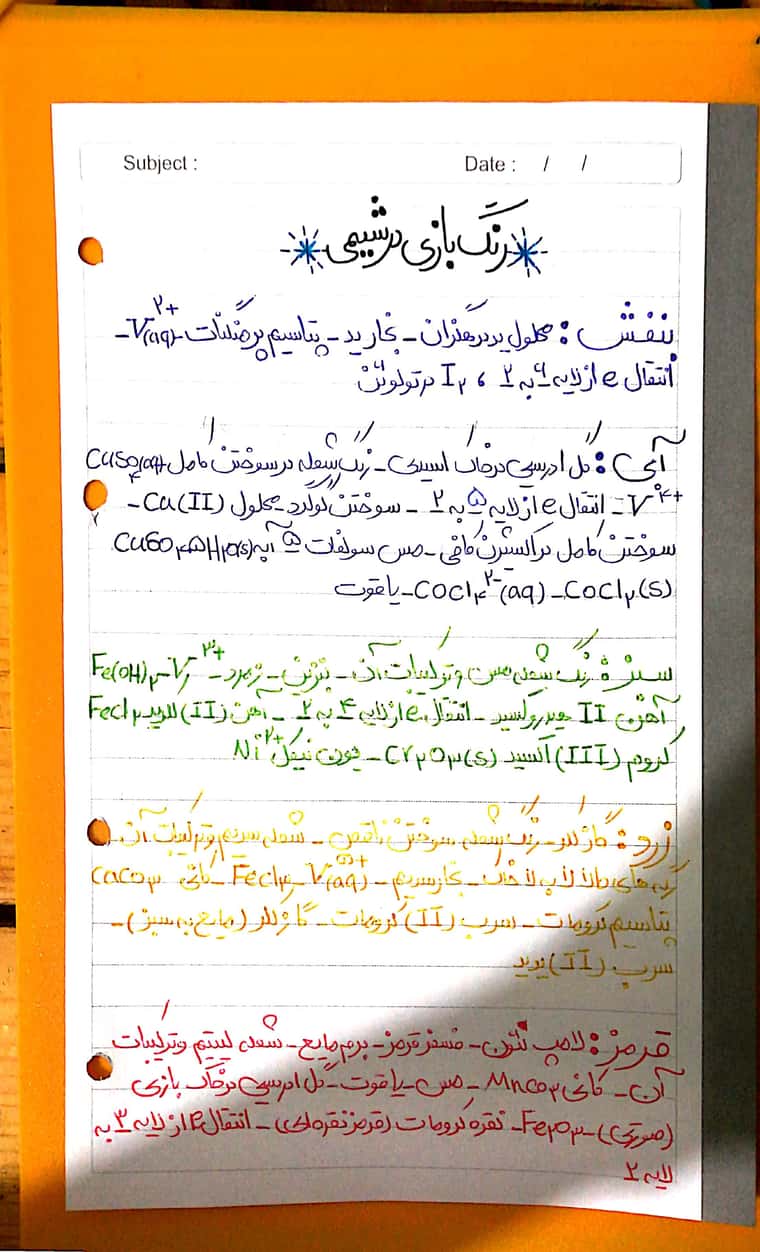 Subject :
Date : / /
رنگ بازی در شیمی
بنفش : محلول ید در هگزان – بخار ید – پتاسیم پرمنگنات – V²⁺(aq) –
انتقال e از لایه ۶ به ۲ ، I₂ در تولوئن
آبی : گل ادریسی در خاک اسیدی – رنگ شعله در سوختن کامل CuSO₄(aq)
V⁴⁺ – انتقال e از لایه ۵ به ۲ – سوختن گوگرد – محلول Cu(II) –
سوختن کامل در اکسیژن کافی – مس سولفات ۵ آبه CuSO₄.۵H₂O(s)
CoCl₂(s) – CoCl₄²⁻(aq) – یاقوت
سبز : رنگ شعله مس و ترکیبات آن – بنزین – زمرد – V³⁺ – Fe(OH)₂
آهن II هیدروکسید – انتقال e از لایه ۴ به ۲ – آهن (II) کلرید FeCl₂
کروم (III) اکسید Cr₂O₃(s) – یون نیکل Ni²⁺
زرد : گاز کلر – رنگ شعله سوختن ناقص – شعله سدیم و ترکیبات آن –
بخار سدیم – V⁵⁺(aq) – FeCl₃ – کانی CaCO₃
پتاسیم کرومات – سرب (II) کرومات – گاز کلر (مایع به سبز) –
سرب (II) یدید
قرمز : لامپ نئون – فسفر قرمز – برم مایع – شعله لیتیم و ترکیبات
آن – کانی MnCO₃ – مس – یاقوت – گل ادریسی در خاک بازی
(صورتی) – Fe₂O₃ – نقره کرومات (قرمز نقره‌ای) – انتقال e از لایه ۳ به
لایه ۲